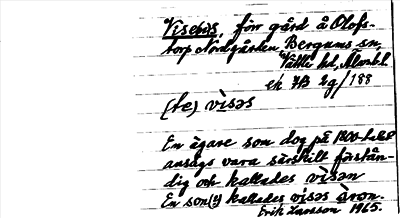 Visebos, förr gård å Olofs-
torp Nordgården, Bergums sn,
Vättle hd, Älvsb.l.
ek 7B 2g/188
(te) vìsəs
En ägare som dog på 1800-talet
ansågs vara särskilt förstån-
dig och kallades vìsən
En son(?) kallades visəs àron.
Erik Larsson 1965.